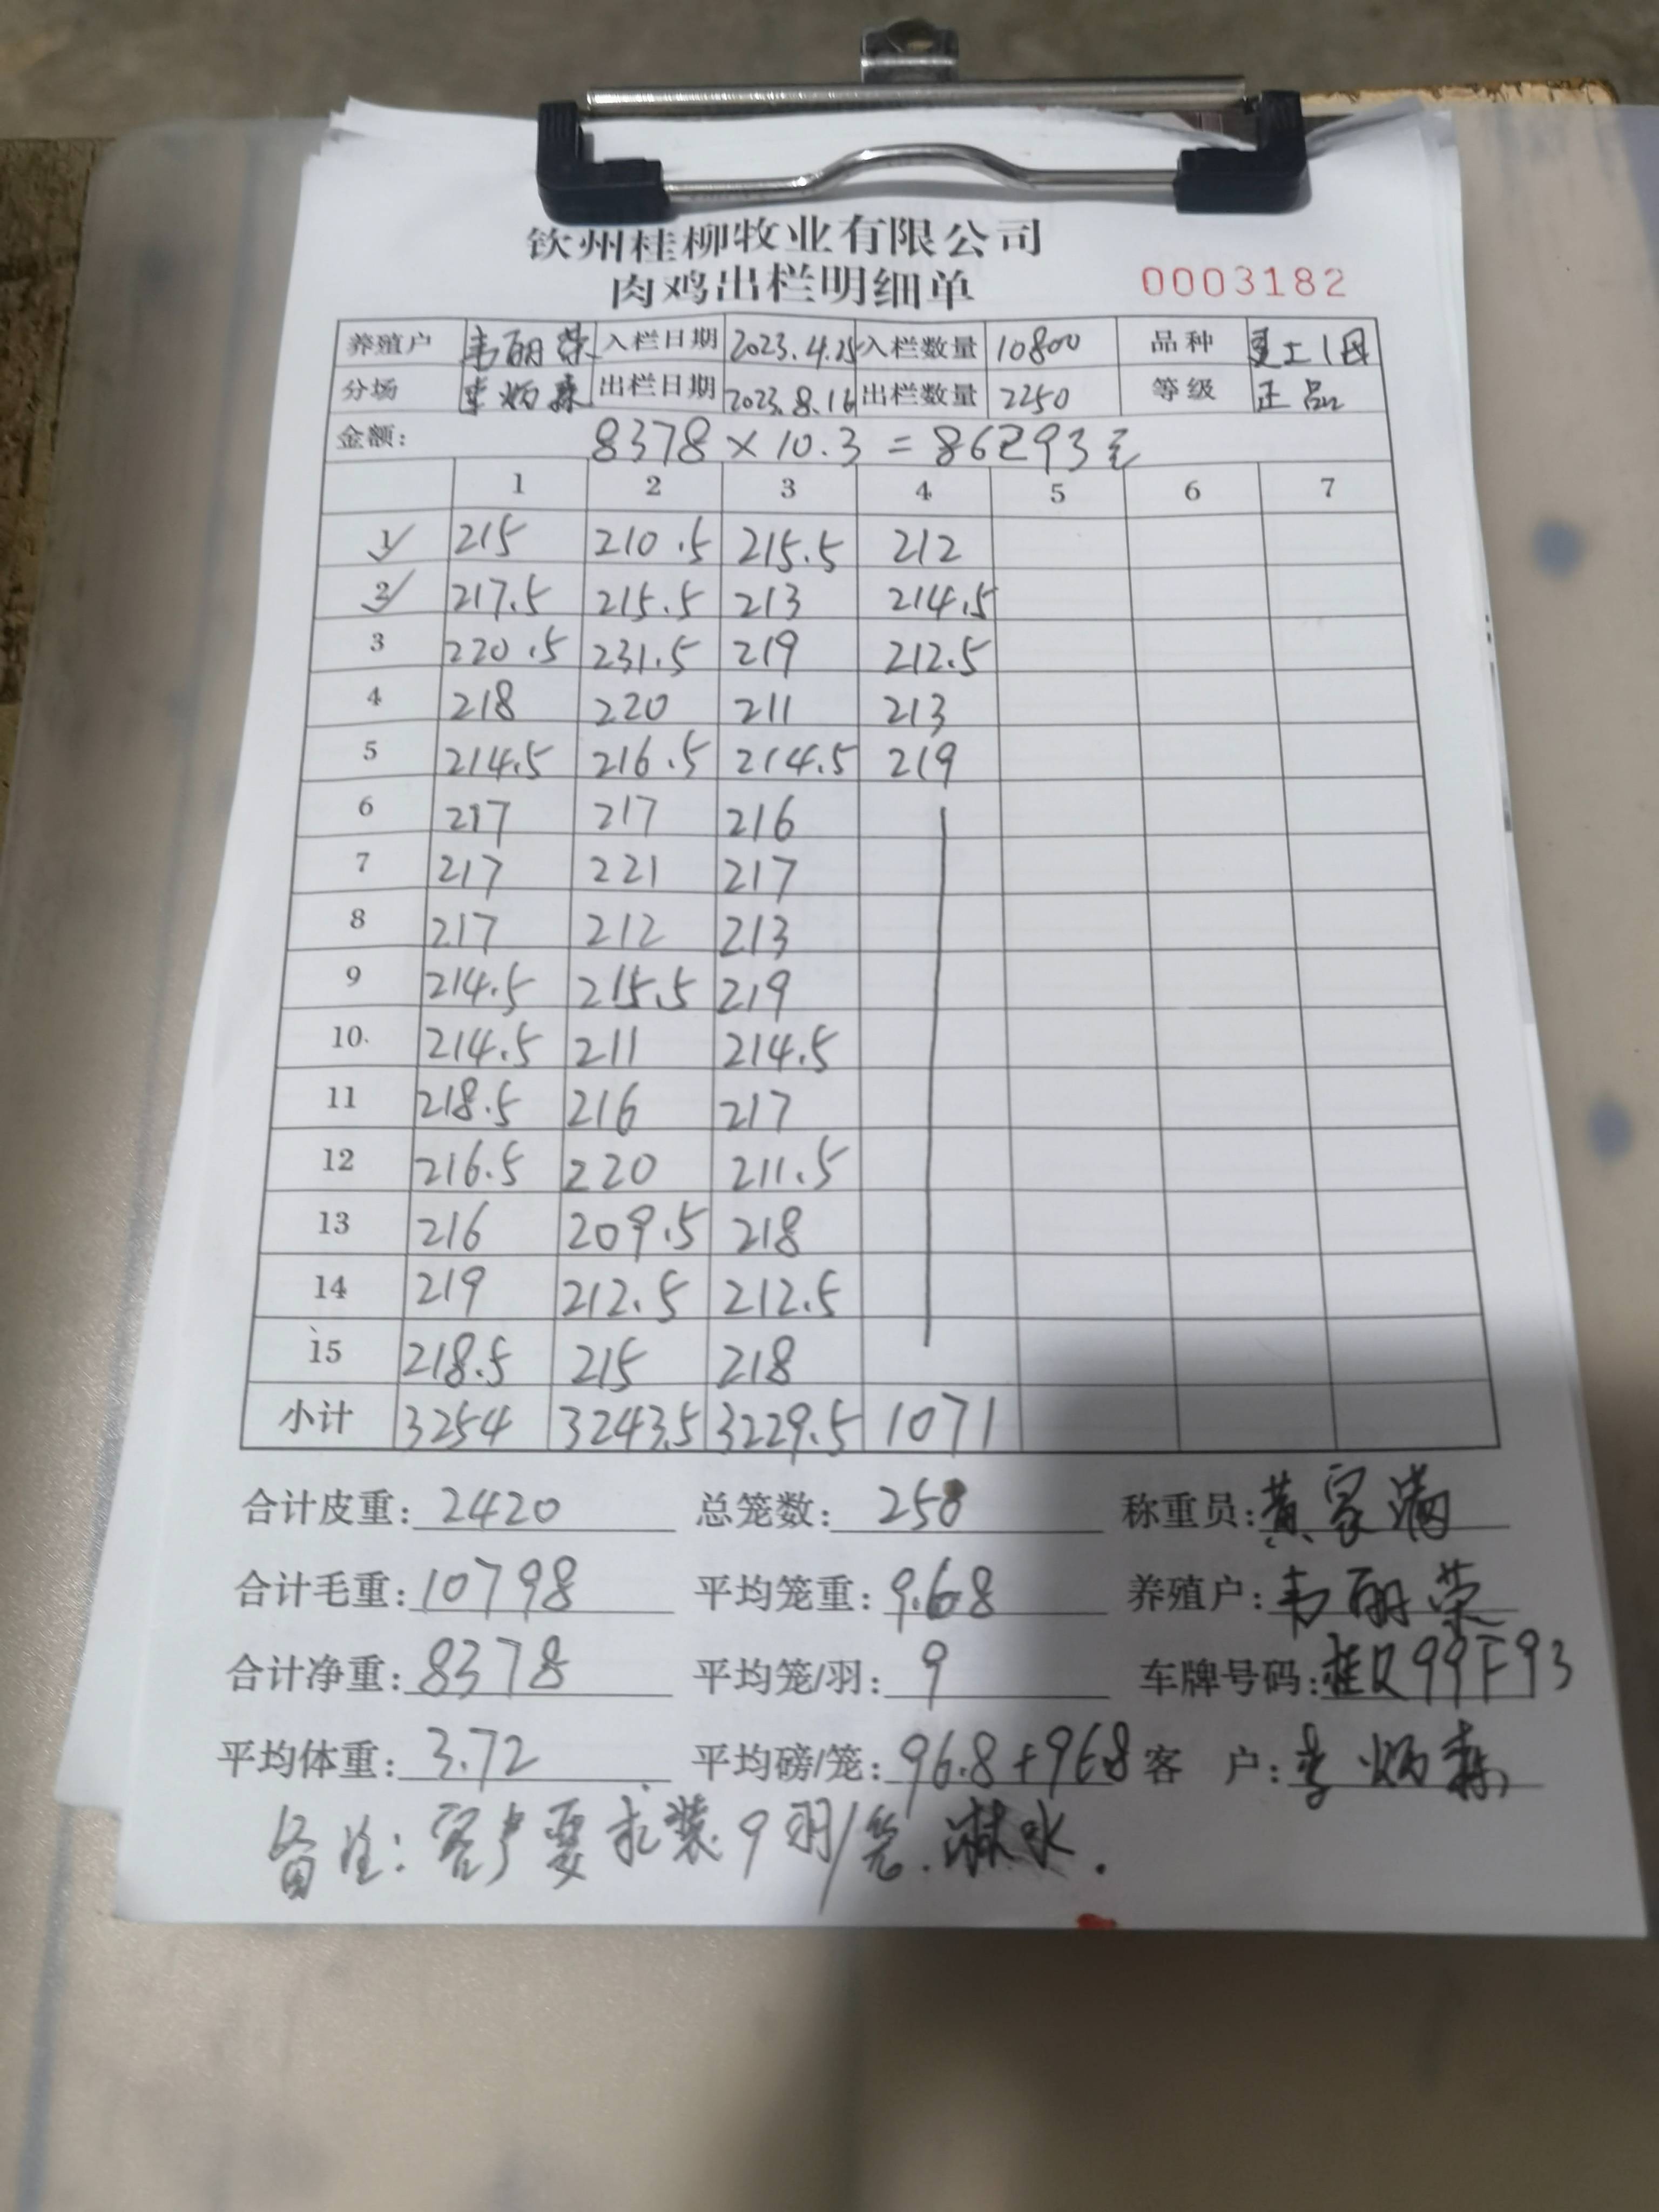 钦州桂柳牧业有限公司
肉鸡出栏明细单
0003182
养殖户 韦丽荣 入栏日期 2023.4.25 入栏数量 10800 品种
分场 李炳森 出栏日期 2023.8.16 出栏数量 2250 等级 正品
金额: 8378×10.3=86293元
1 2 3 4 5 6 7
1 215 210.5 215.5 212
2 217.5 215.5 213 214.5
3 220.5 231.5 219 212.5
4 218 220 211 213
5 214.5 216.5 214.5 219
6 217 217 216
7 217 221 217
8 217 212 213
9 214.5 215.5 219
10 214.5 211 214.5
11 218.5 216 217
12 216.5 220 211.5
13 216 209.5 218
14 219 212.5 212.5
15 218.5 215 218
小计 3254 3243.5 3229.5 1071
合计皮重: 2420 总笼数: 250 称重员: 黄家满
合计毛重: 10798 平均笼重: 9.68 养殖户: 韦丽荣
合计净重: 8378 平均笼/羽: 9 车牌号码: 桂R99F93
平均体重: 3.72 平均磅/笼: 96.8+96.8 客 户: 李炳森
备注: 客户要求装9羽/笼.淋水.